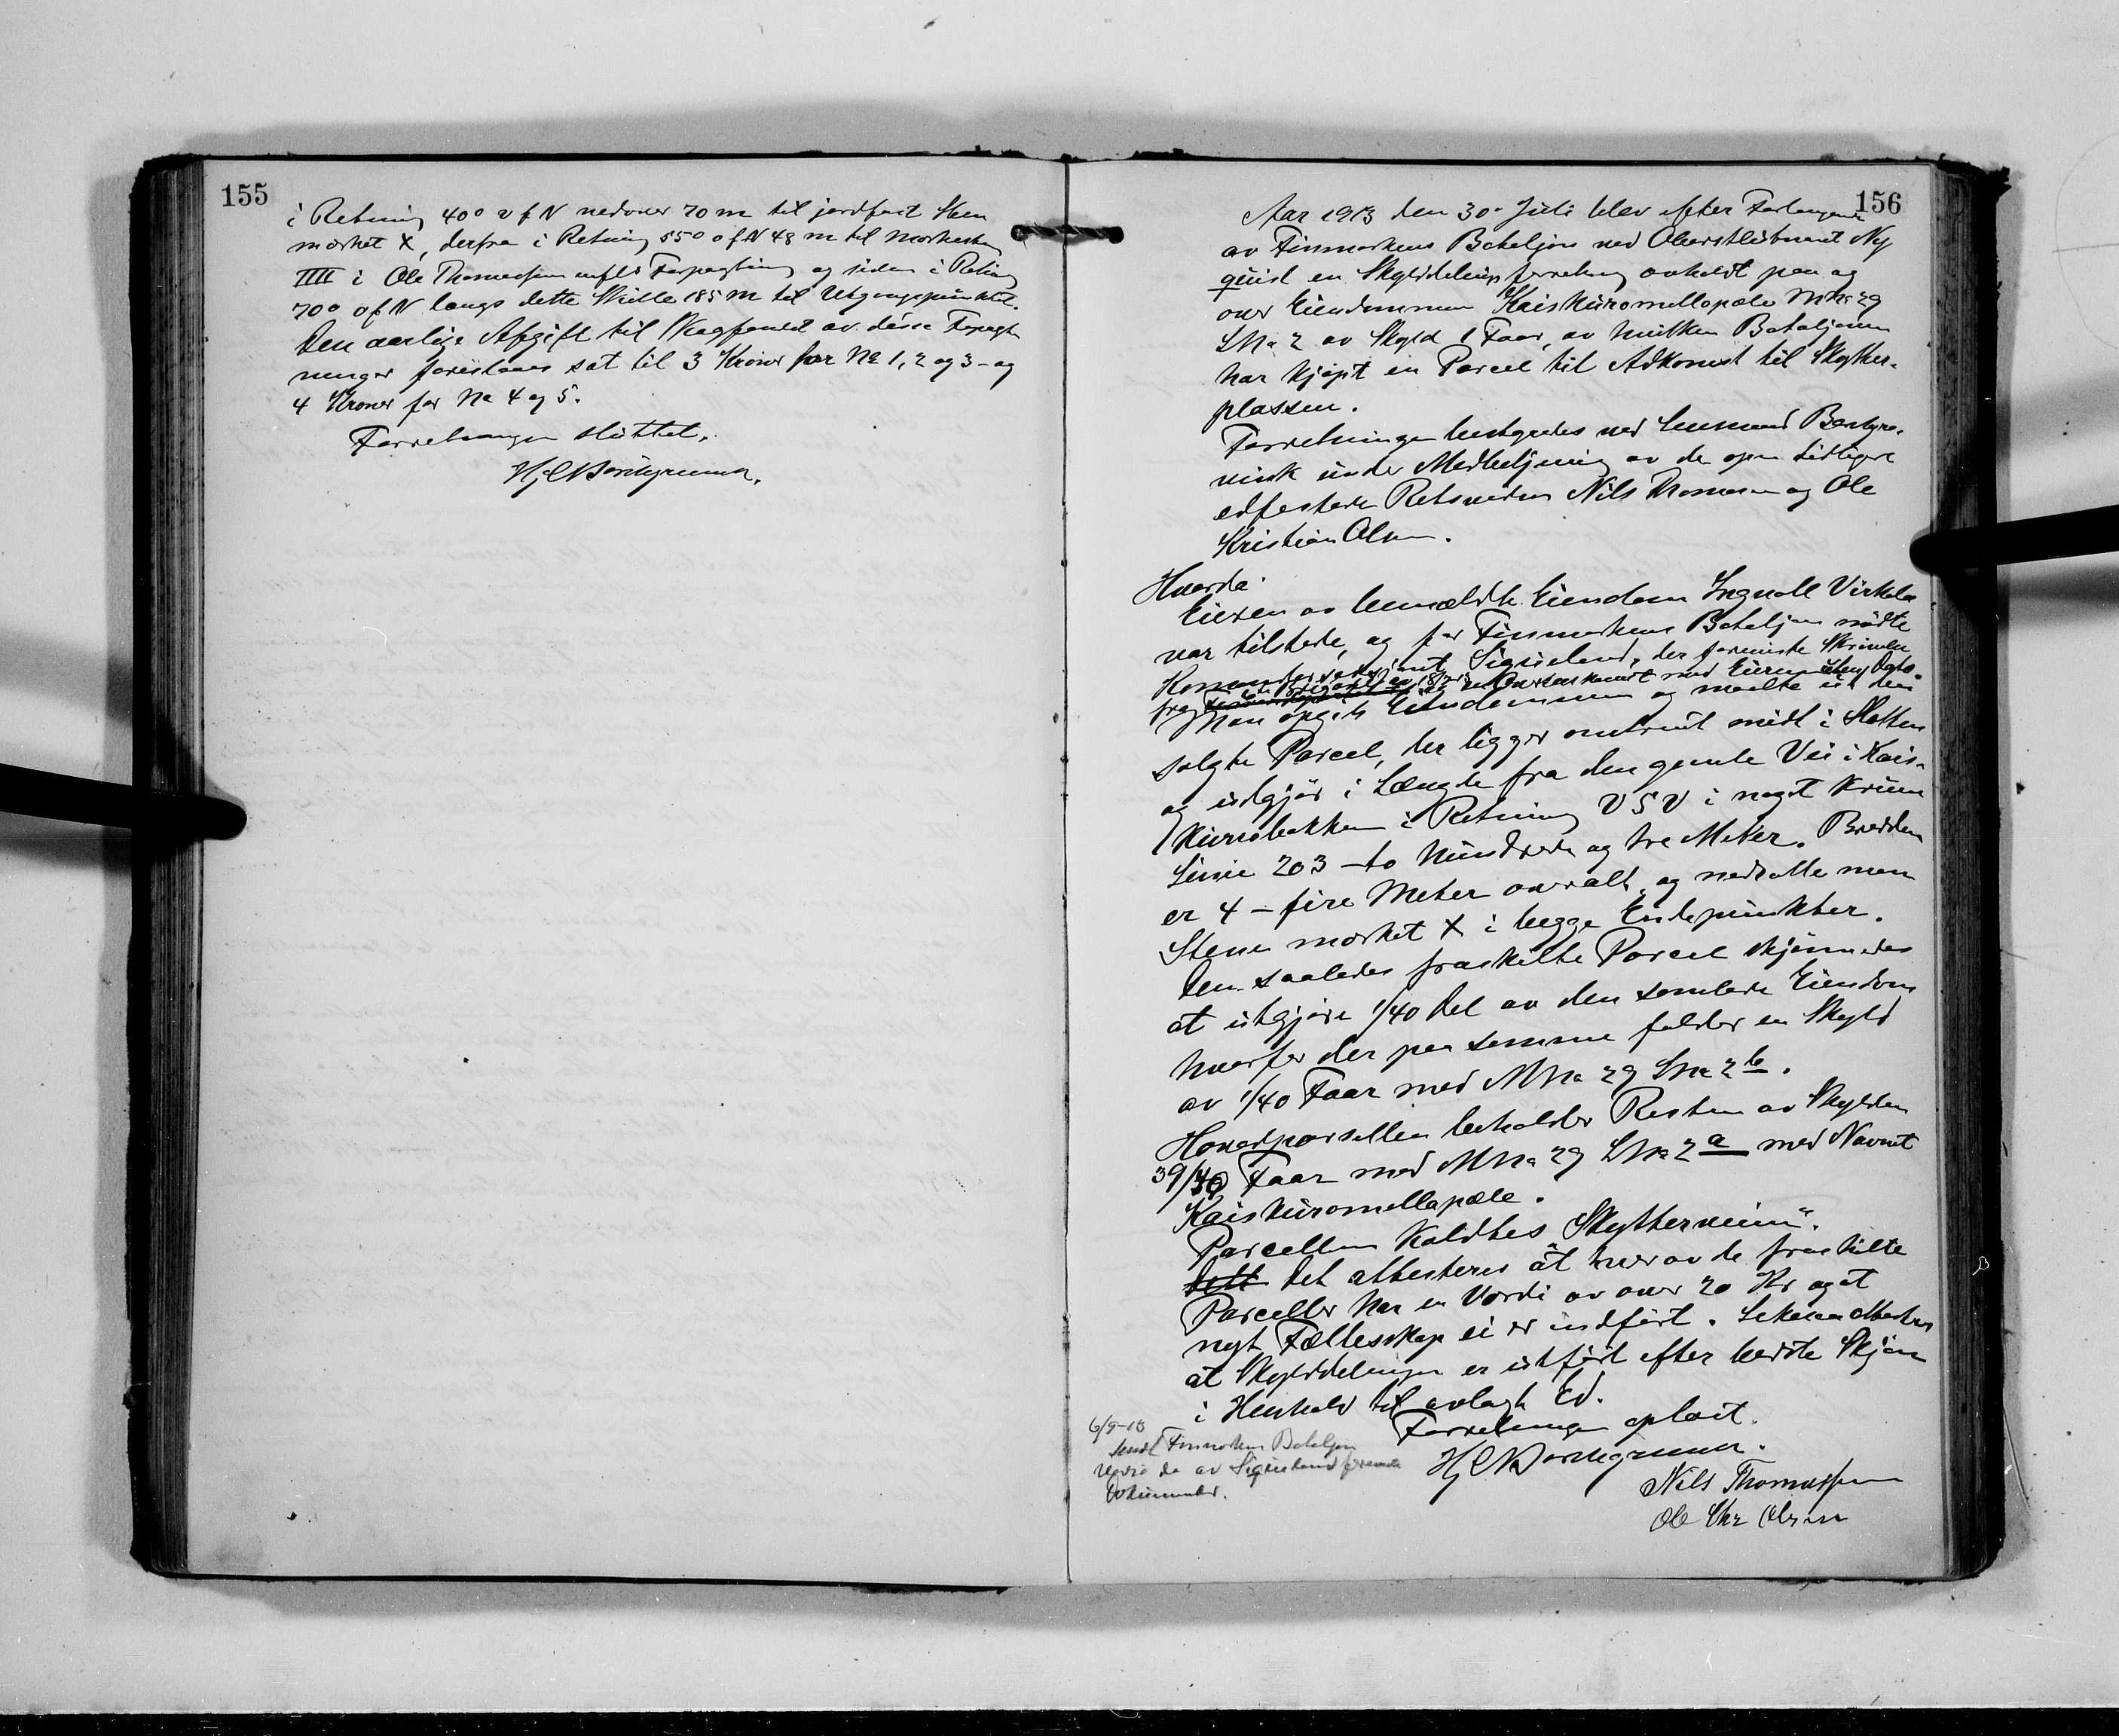 155
i Retning 40° v f N nedover 70 m til jordfast Sten
merket X, derfra i Retning 55° o f N 48 m til Merkesten
IIII i Ole Thomassens Forpagtning og siden i Retning
70° o f N langs dette Skille 185 m til Utgangspunktet.
Den aarlige Afgift til Skogfondet av disse Forpagt
ninger foreslaaes sat til 3 Kroner for No 1, 2 og 3 - og
4 Kroner for No 4 og 5.
Forretningen sluttet.
156
Aar 1913 den 30. Juli blev efter Forlangende
av Finmarkens Bataljon ved Oberstløitnant Ny
quist en Skylddelingsforretning avholdt paa og
over Eiendommen Kaiskuromellapæle MNo 29
LNo 2 av Skyld 1 Faar, av hvilken Bataljonen
har kjøpt en Parcel til Adkomst til Skytter-
plassen.
Forretningen bestyredes ved Lensmand Bordgre-
vink under Medbetjening av de open tidligere
edfestede Retsvidner Nils Thomassen og Ole
Kristian Olsen.
Hvorda:
Eieren av bemældte Eiendom Ingvall Virkola
var tilstede, og for Finmarkens Bataljon mødte
Kommandersersjant Sigueland, der foreviste Skrivelse
fra 6te Brigade av 18/7 13 og en Overenskomst med Eieren
Man opgik Eiendommen og maalte ut den
solgte Parcel, der ligger omtrent midt i Sletten
og utgjør i Længde fra den gamle Vei i Kais-
kurrobakken i Retning VSV i noget krum
Linie 203 - to hundrede og tre Meter. Bredden
er 4 - fire Meter overalt, og nedsatte man
Stene merket X i begge Endepunkter.
Den saaledes fraskilte Parcel skjønnedes
at utgjøre 1/40 Del av den samlede Eiendom
hvorfor der paa samme falder en Skyld
av 1/40 Faar med MNo 29 LNo 2 b.
Hovedparsellen beholder Resten av Skylden
39/40 Faar med MNo 29 LNo 2 a med Navnet
Kaiskuromellapæle.
Parcellen kaldtes Skytterveien".
Det attesteres at hver av de fraskilte
Parceller har en Værdi av over 20 Kr og at
nyt Fællesskap ei er indført. Likesaa attesteres
at Skylddelingen er utført efter bedste Skjøn
i Henhold til avlagt Ed.
Forretningen oplæst.
Nils Thomassen
Ole Chr Olsen
6/9-13
sendt Finmarkens Bataljon
de av Sigueland foreviste
Dokumenter.